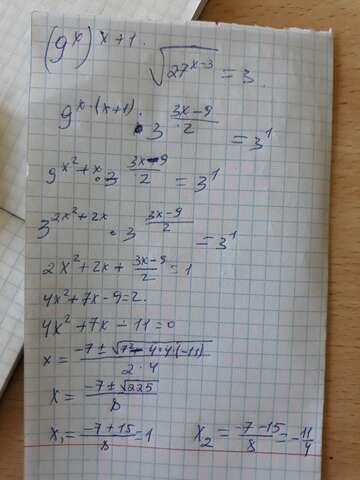 (9^x)^{x+1} · √(27^{x-3}) = 3
9^{x·(x+1)} · 3^{(3x-9)/2} = 3^1
9^{x²+x} · 3^{(3x-9)/2} = 3^1
3^{2x²+2x} · 3^{(3x-9)/2} = 3^1
2x²+2x+(3x-9)/2=1
4x²+7x-9=2.
4x²+7x-11=0
x=(-7±√(7²-4·4·(-11)))/(2·4)
x=(-7±√225)/8
x₁=(-7+15)/8=1 x₂=(-7-15)/8=-11/4